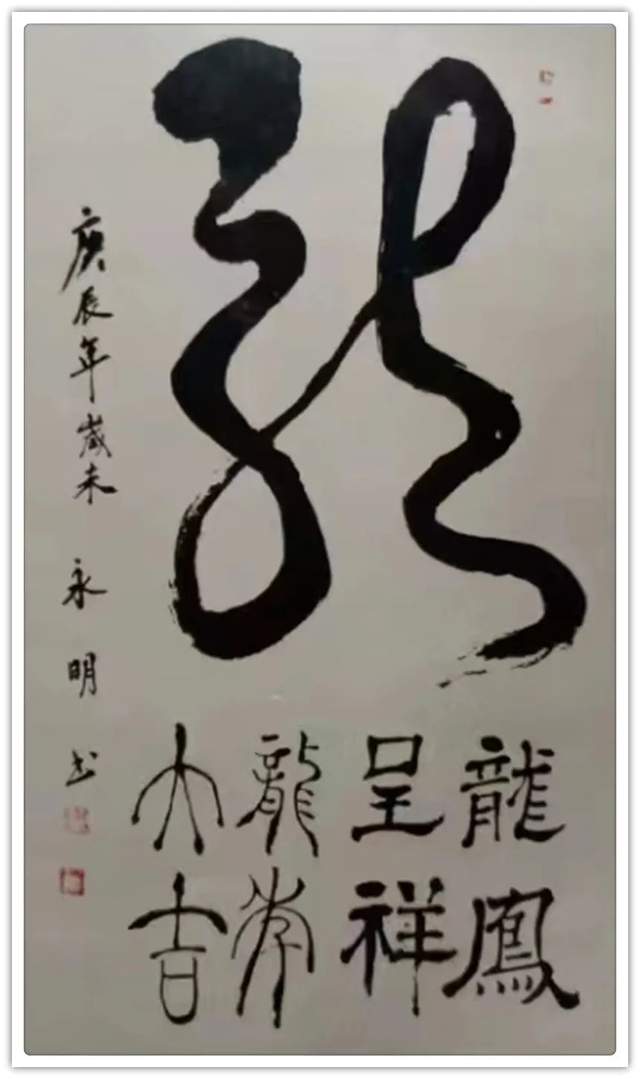 龍
龍鳳
呈祥
龍年
大吉
庚辰年歲末 永明书